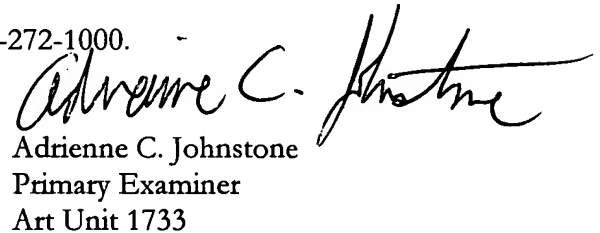 -272-1000.
Adrienne C. Johnstone
Adrienne C. Johnstone
Primary Examiner
Art Unit 1733